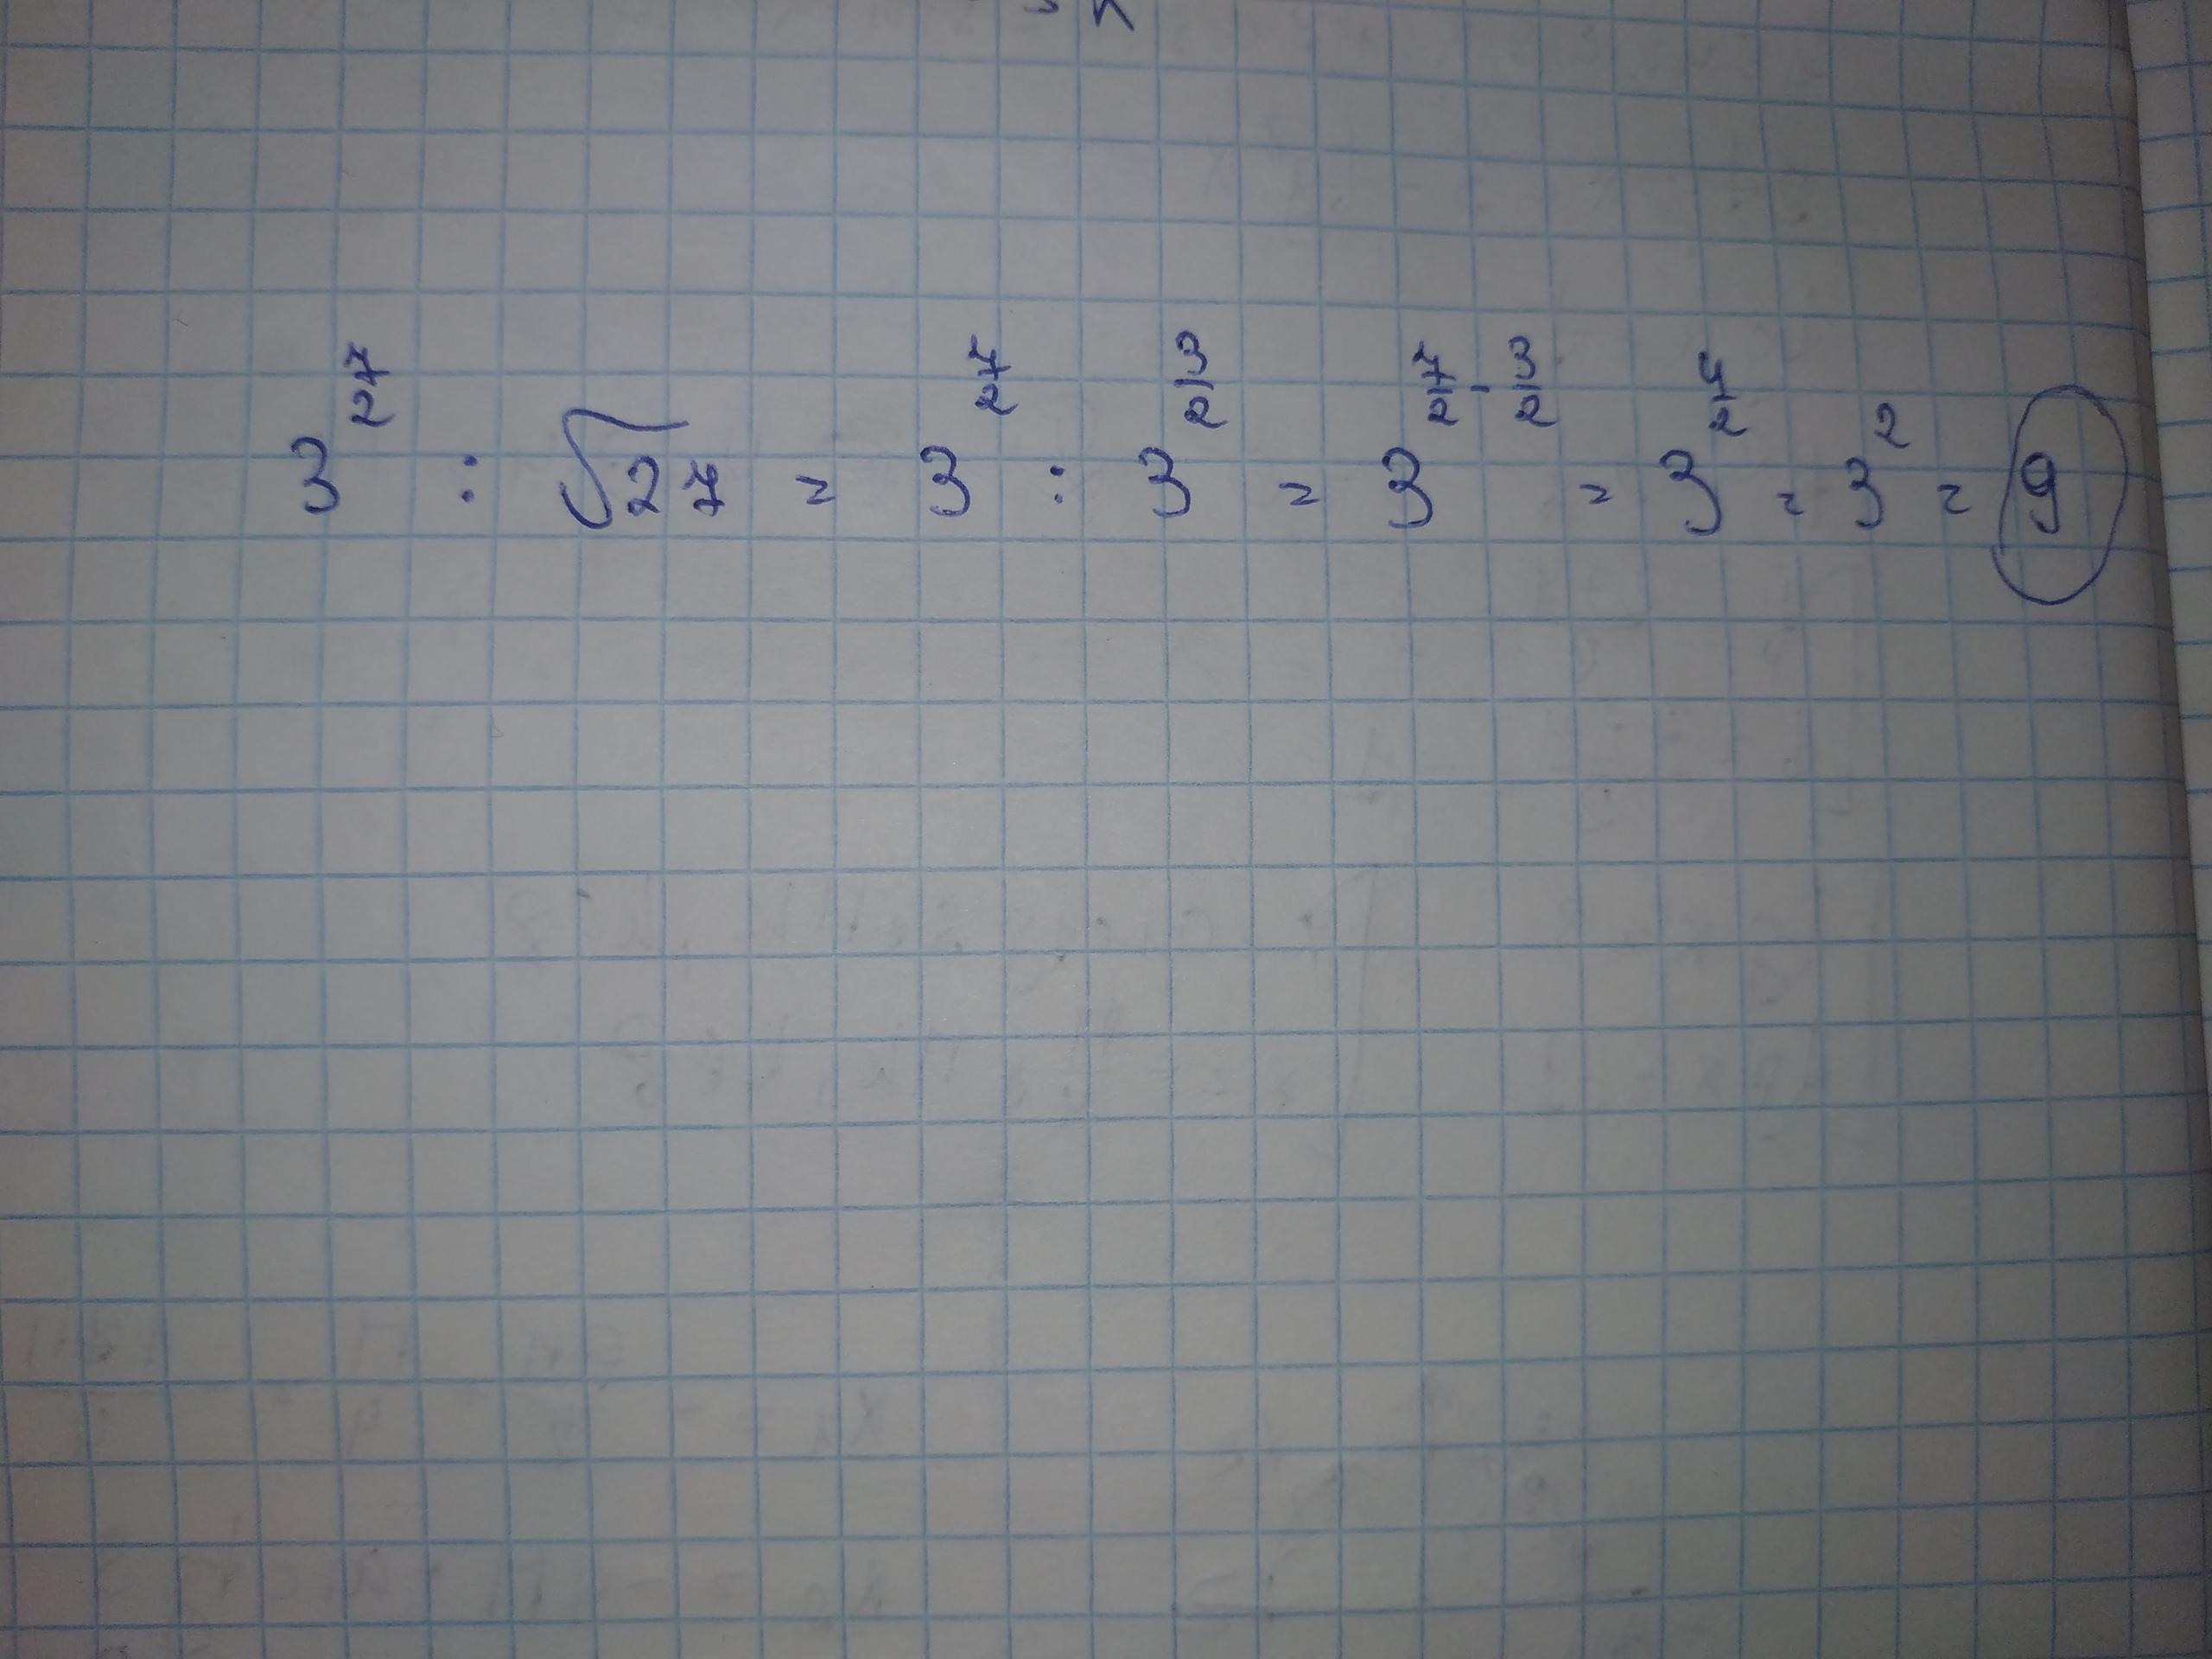 3^{\frac{7}{2}} : \sqrt{27} = 3^{\frac{7}{2}} : 3^{\frac{3}{2}} = 3^{\frac{7}{2} - \frac{3}{2}} = 3^{\frac{4}{2}} = 3^2 = 9